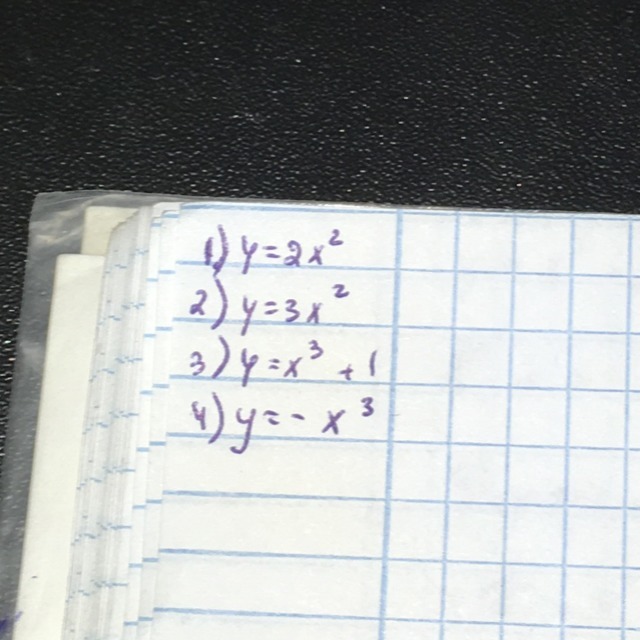 1) y=2x²
2) y=3x²
3) y=x³+1
4) y=-x³